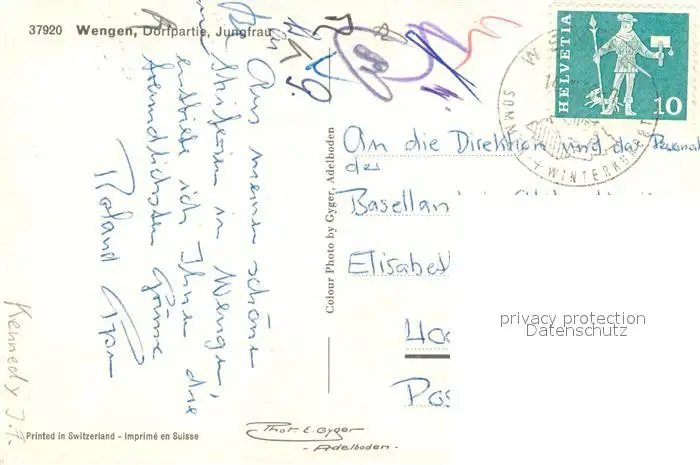 37920 Wengen, Dorfpartie, Jungfrau
Aus meinen schönen
Skiferien in Wengen
entbiete ich Ihnen die
freundlichsten Grüsse
Roland
Kennedy J.F.
Printed in Switzerland - Imprimé en Suisse
Colour Photo by Gyger, Adelboden
Phot. E. Gyger
- Adelboden -
HELVETIA
10
SOMMER + WINTERKURORT
An die Direktion und das Personal
des
Basellan
Elisabet
privacy protection
Datenschutz